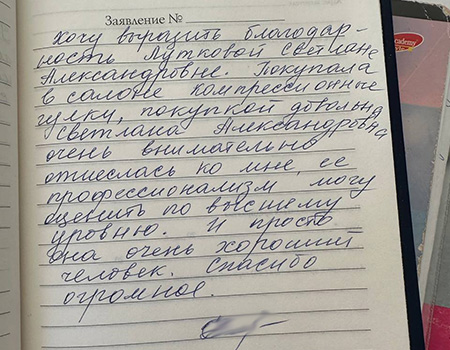 Заявление №
Хочу выразить благодар-
ность Лутковой Светлане
Александровне. Покупала
в салоне компрессионные
гулку, покупкой довольна
Светлана Александровна
очень внимательно
отнеслась ко мне, ее
профессионализм могу
оценить по высшему
уровню. И просто
она очень хороший
человек. Спасибо
огромное.
academy